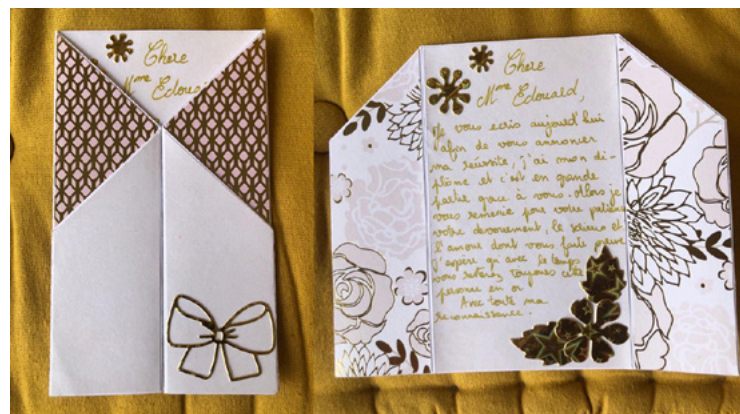 Chere
Mme Edoua
Chere
Mme Edouard,
Je vous ecris aujourd'hui
afin de vous annoncer
ma réussite, j'ai mon di-
plôme et c'est en grande
partie grace à vous. Alors je
vous remercie pour votre patience
votre devouement, le sérieux et
l'amour dont vous faite preuve
J'espère qu'avec le temps
vous reterez toujours cette
personne en or
Avec toute ma
reconnaissance.